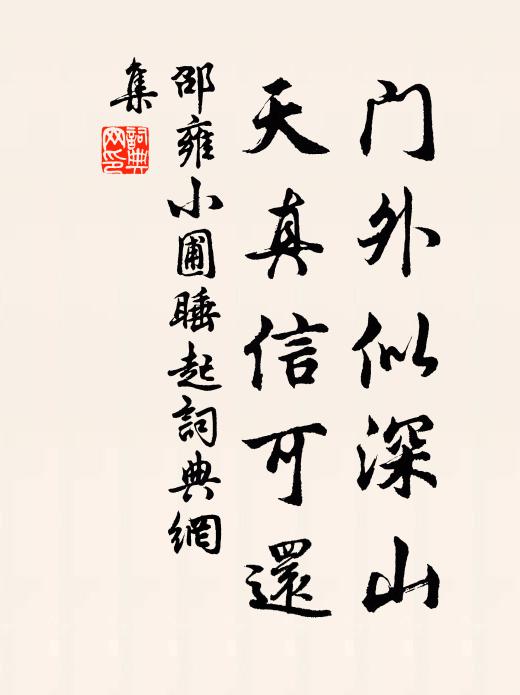 门外似深山
天真信可還
邵雍小圃睡起詞典網
集
詞典网印